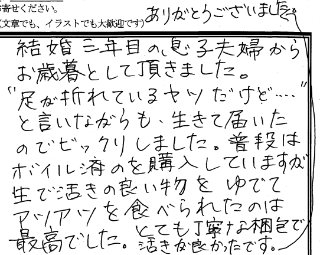 寄せください。
(文章でも、イラストでも大歓迎です)
ありがとうございました。
結婚三年目の息子夫婦から
お歳暮として頂きました。
"足が折れているヤツだけど…"
と言いながらも、生きて届いた
のでビックリしました。普段は
ボイル済のを購入していますが
生で活きの良い物を ゆでて
アツアツを食べられたのは
最高でした。とても丁寧な梱包で
活きが良かったです。